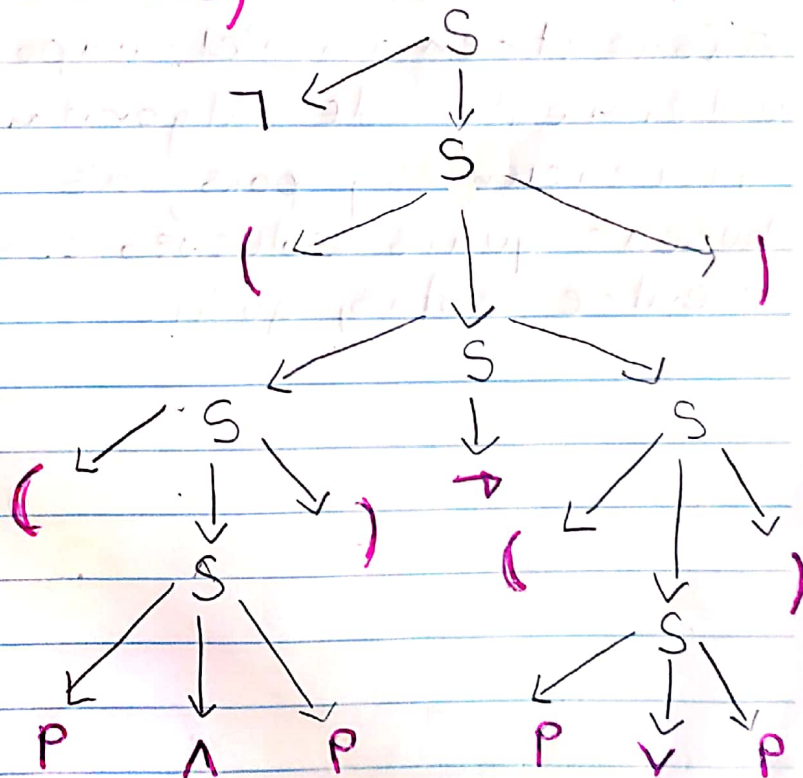 )
S
¬
S
( )
S
S S
( ) → ( )
S
S
P ∧ P P ∨ P